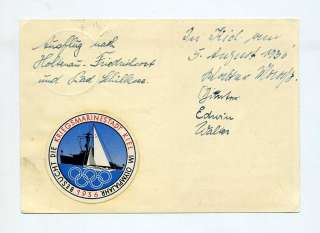 Ausflug nach
Holtenau-Friedrichsort
und Bad Schilksee
In Kiel am
5. August 1936
Günter
Edwin
Walter
BESUCHT DIE KRIEGSMARINESTADT KIEL IM OLYMPIAJAHR
1936